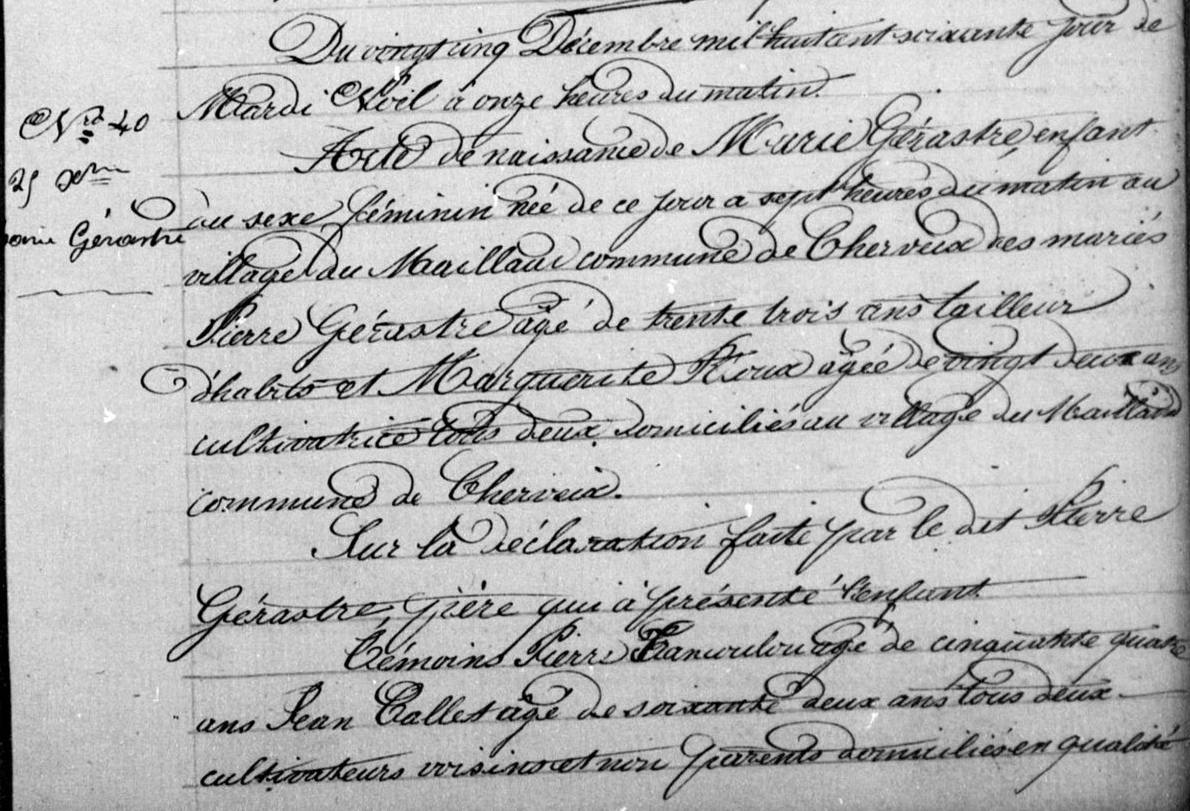 Du vingt cinq Décembre mil huit cent soixante jour de
Mardi Noël à onze heures du matin.
Nº 40
Acte de naissance de Marie Gérastre, enfant
25 Xbre
du sexe féminin née de ce jour a sept heures du matin au
Marie Gérastre
village du Maillaud commune de Cherveix des mariés
Pierre Gérastre âgé de trente trois ans tailleur
d'habits et Marguerite Rioux âgée de vingt deux ans
cultivatrice tous deux domiciliés au village du Maillaud
commune de Cherveix.
Sur la déclaration faite par le dit Pierre
Gérastre, père qui à présenté l'enfant
Témoins Pierre âgé de cinquante quatre
ans Jean Callet âgé de soixante deux ans tous deux
cultivateurs voisins et non parents domiciliés en qualité